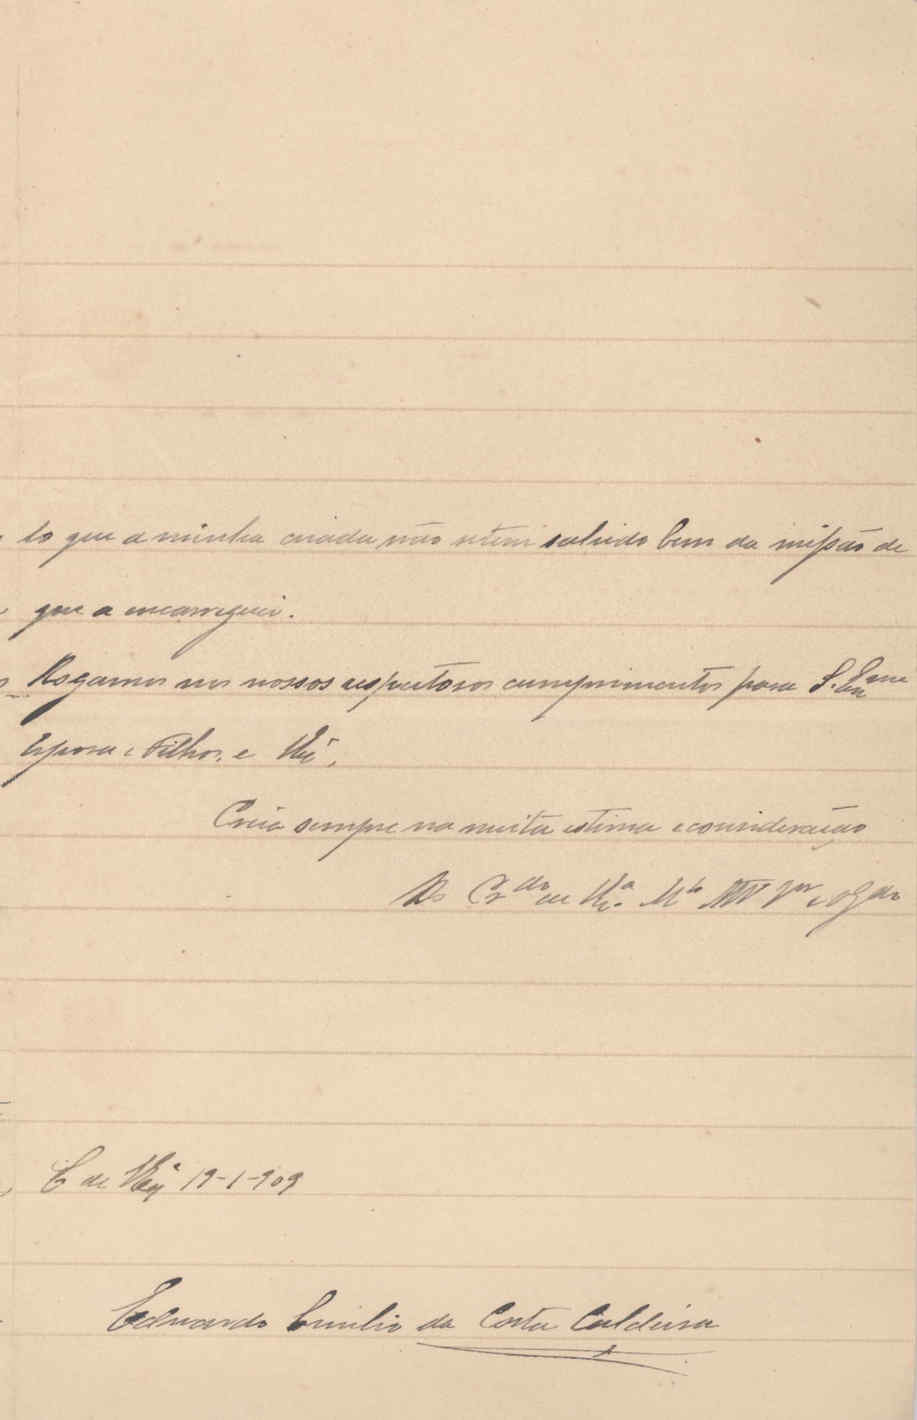 to que a minha criada não tem sahido bem da missão de
que a encarreguei.
Rogamos os nossos respeitosos cumprimentos para S. Exma
Esposa e Filhos, e
Creia sempre na muita estima e consideração
Do Crdo de Va. Mto
C de 19-1-909
Eduardo Emilio da Costa Caldeira